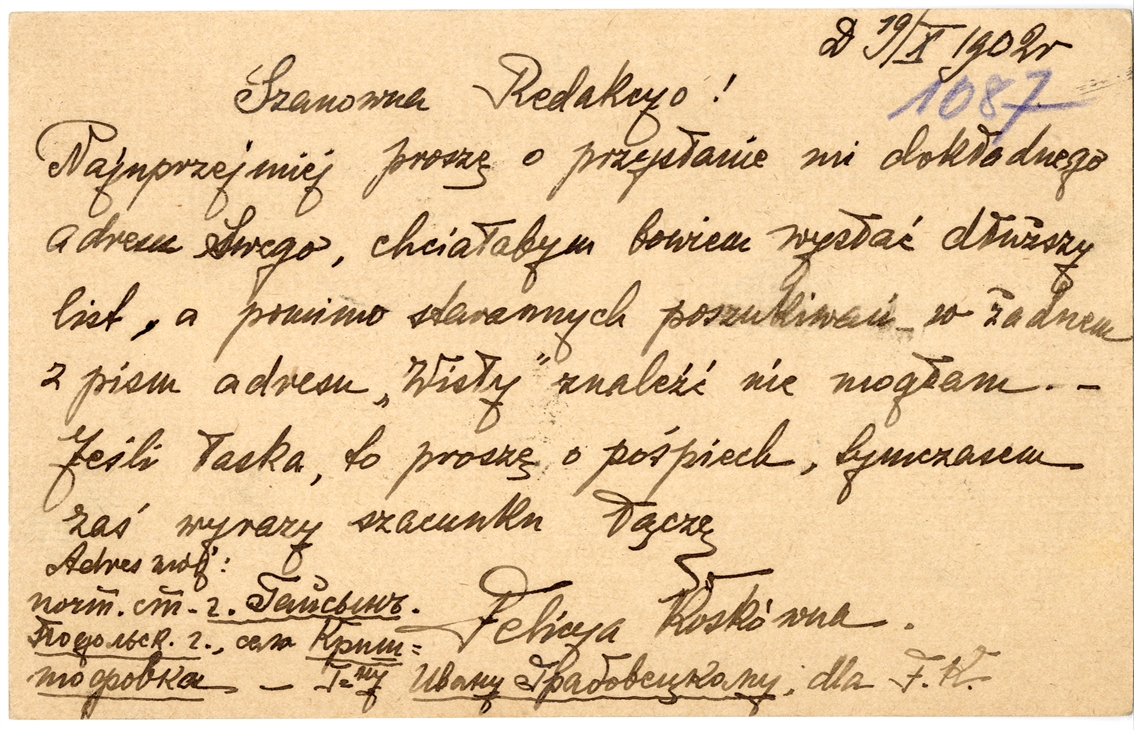 D 19/X 1902 r
1087
Szanowna Redakcyo!
Najuprzejmiej proszę o przysłanie mi dokładnego
adresu Swego, chciałabym bowiem wysłać dłuższy
list, a pomimo starannych poszukiwań w żadnem
z pism adresu „Wisły” znaleźć nie mogłam. —
Jeśli łaska, to proszę o pośpiech, tymczasem
zaś wyrazy szacunku łączę
Adres mój:
почт. ст. г. Гайсынъ.
Felicya Kośkówna.
Подольск. г., село Криш=
тофовка — Г-ну Ивану Грабовецкому, dla F. K.